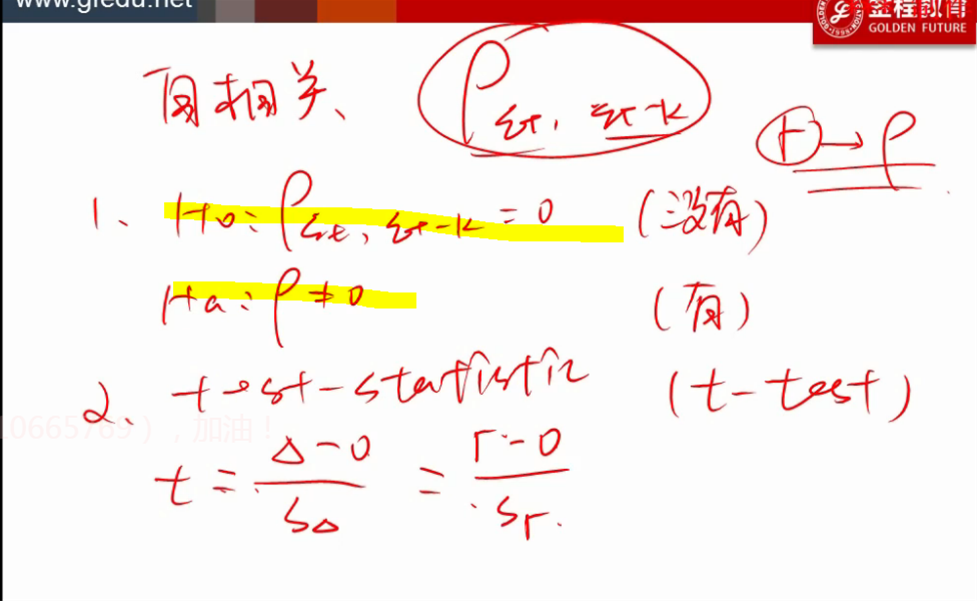 www.gfedu.net
金程教育
GOLDEN FUTURE
自相关、 ρ εt, εt-k
r → ρ
1、 H0: ρ εt, εt-k = 0 (没有)
Ha: ρ ≠ 0 (有)
2、 test-statistic (t-test)
.0665769），加油！
t = △-0 / S△ = r-0 / Sr.